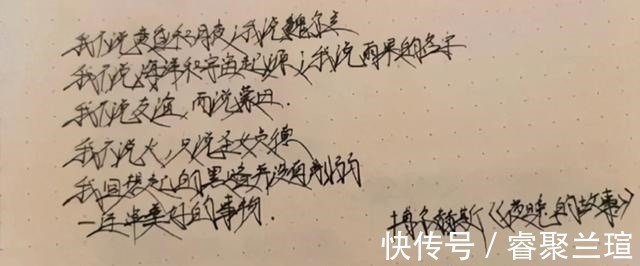 我不说黄昏和月夜;我说魏尔兰
我不说海洋和宇宙起源;我说雨果的名字
我不说友谊,而说蒙田.
我不说火,只说圣女贞德
我回想起的黑暗并没有削弱
一连串美好的事物.
博尔赫斯《夜晚的故事》
快传号 / 睿聚兰瑄